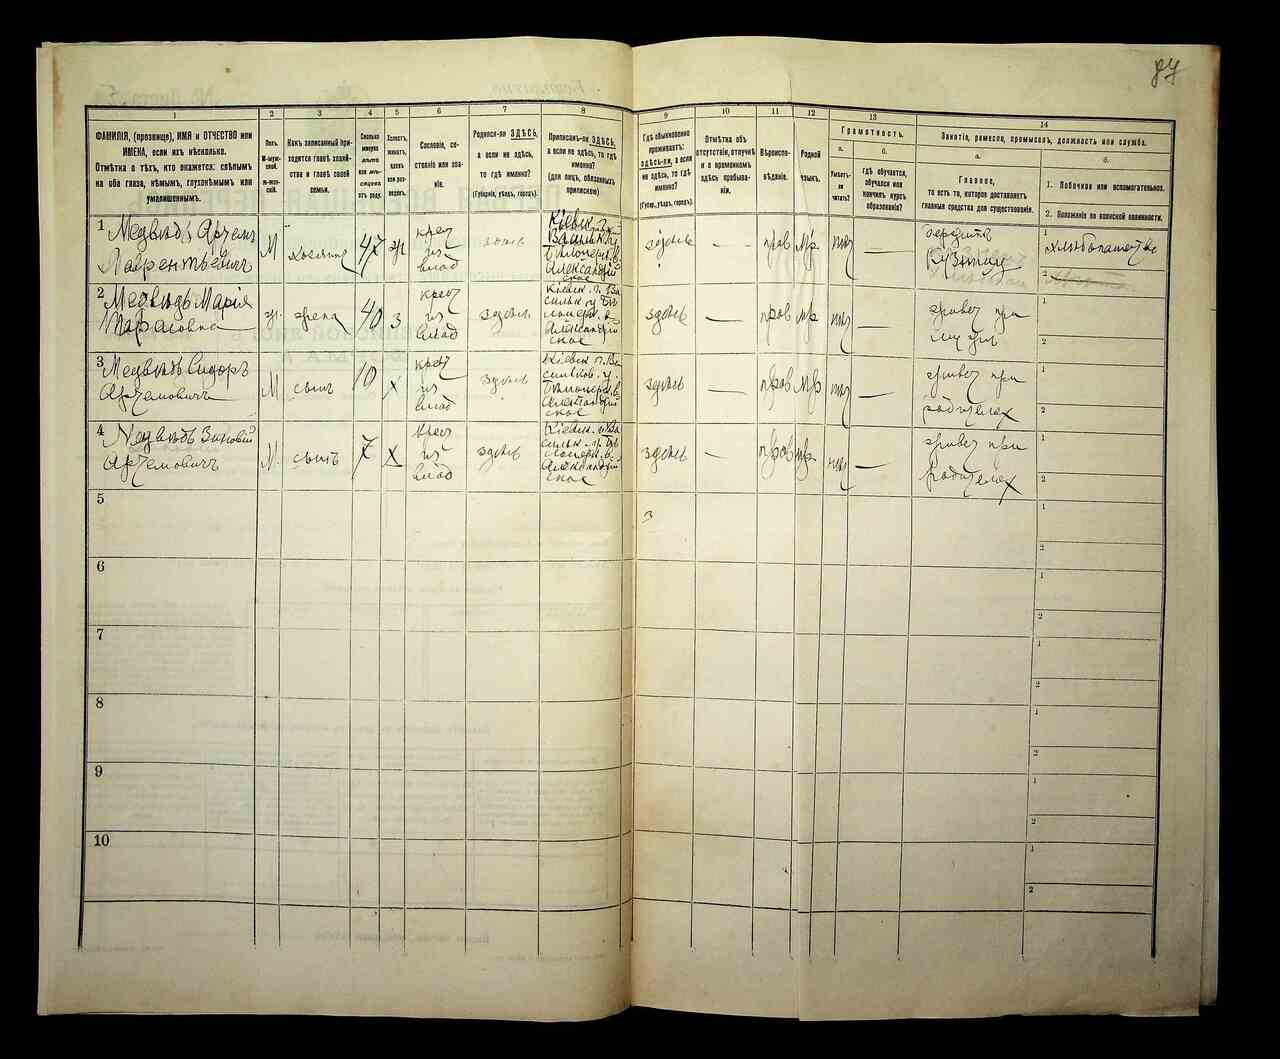 87
1
2
3
4
5
6
7
8
9
10
11
12
13
14
ФАМИЛІЯ, (прозвище), ИМЯ и ОТЧЕСТВО или
ИМЕНА, если ихъ нѣсколько.
Отмѣтка о тѣхъ, кто окажется: слѣпымъ
на оба глаза, нѣмымъ, глухонѣмымъ или
умалишеннымъ.
Полъ.
М-мужской.
ж-женскій.
Какъ записанный приходится главѣ хозяйства и главѣ своей семьи.
Сколько минуло лѣтъ или мѣсяцевъ отъ роду.
Холостъ, женатъ, вдовъ или разведенъ.
Сословіе, состояніе или званіе.
Родился-ли ЗДѢСЬ,
а если не здѣсь,
то гдѣ именно?
(Губернія, уѣздъ, городъ).
Приписанъ-ли ЗДѢСЬ,
а если не здѣсь, то гдѣ
именно?
(для лицъ, обязанныхъ
припискою)
Гдѣ обыкновенно
проживаетъ:
ЗДѢСЬ-ли, а если
не здѣсь, то гдѣ
именно?
(Губер., уѣздъ, городъ).
Отмѣтка объ
отсутствіи, отлучкѣ
и о временномъ
здѣсь пребываніи.
Вѣроисповѣданіе.
Родной
языкъ.
Грамотность.
а.
Умѣетъ-ли
читать?
б.
гдѣ обучается,
обучался или
кончилъ курсъ
образованія?
Занятіе, ремесло, промыселъ, должность или служба.
а.
Главное,
то есть то, которое доставляетъ
главныя средства для существованія.
б.
1. Побочное или вспомогательное.
2. Положеніе по воинской повинности.
1
Медвѣдь Артемъ
Лаврентьевичъ
М
хозяинъ
47
ж
крес
из
влад
здѣсь
Кіевск. г.
Васильк. у
Бѣлоцерк. в
Александрій
ское
здѣсь
—
прав
Мр
нѣт
—
кузнец
1
хлѣбопашество
2
2
Медвѣдь Марія
ж.
жена
40
з
крес
из
влад
здѣсь
Кіевск. г. Ва
сильк у Бѣ
лоцерк. в
Александрій
ское
здѣсь
—
прав
мр
нѣт
—
живет при
мужѣ
1
2
3
Медвѣдь Сидоръ
Артемовичъ
М
сынъ
10
х
крес
из
влад
здѣсь
Кіевск г. Ва
сильков. у.
Бѣлоцерк. в
Александрій
ское
здѣсь
—
прав
Мр
нѣт
—
живет при
родителех
1
2
4
Медвѣдь Зиновій
Артемовичъ
М.
сынъ
7
х
крес
из
влад
здѣсь
Кіевск. г. Ва
сильк. у. Бѣ
лоцерк. в.
Александрій
ское
здѣсь
—
прав
мр
нѣт
—
живет при
родителех
1
2
5
з
1
2
6
1
2
7
1
2
8
1
2
9
1
2
10
1
2